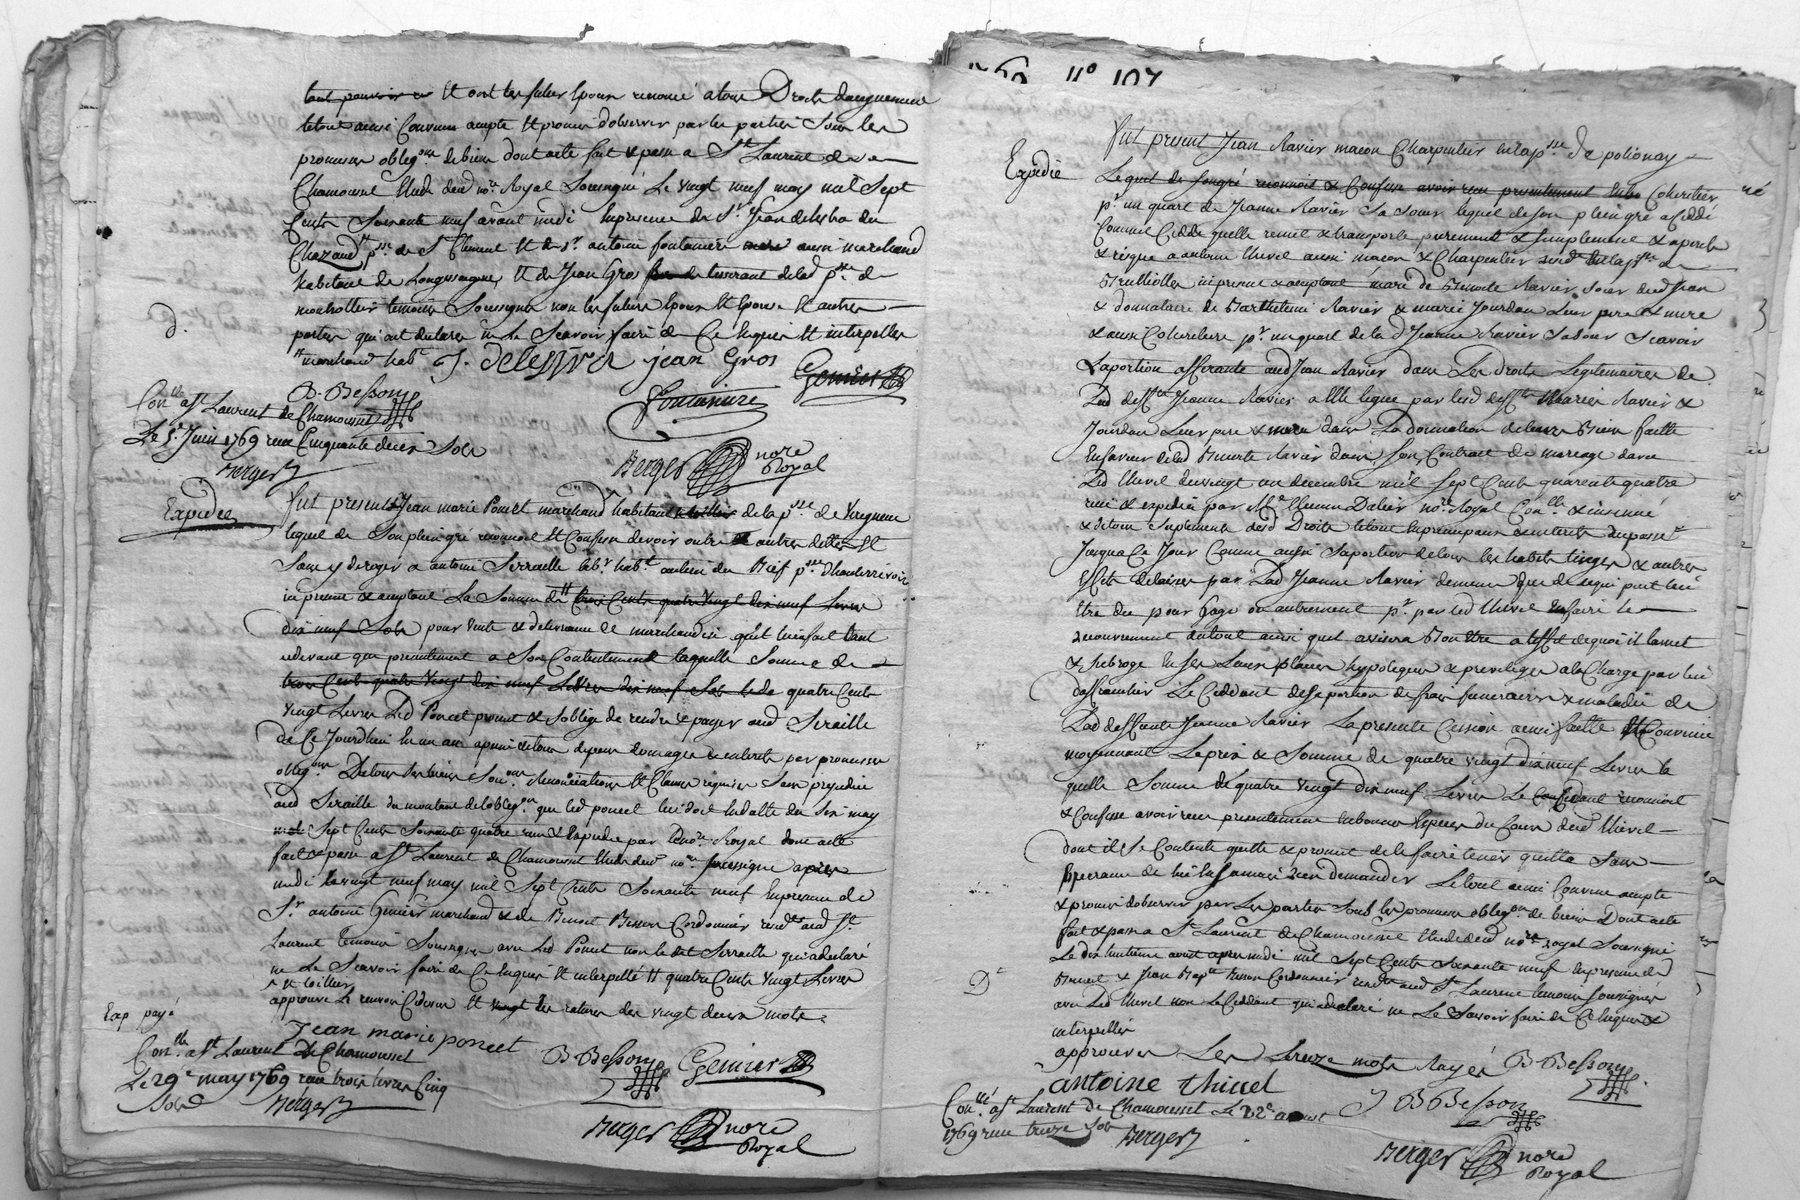 tout pouvoir et ont les futurs Epoux renoncé a tous Droits daugment
letout ainsi Convenu accepté Et promis dobserver par les parties Sous les
promesses obligons de biens dont acte fait & passé a St. Laurent de
Chamousset Etude dud. nore. Royal Soussigné Le vingt neuf may mil Sept
Cents Soixante neuf avant midi En presence de Sr. Jean delestra du
Chazaud psse. de St Clement Et de Sr. antoine fontaniere aussi marchand
habitant de Longessaigne, Et de Jean Gros tisserant delad. psse. de
montrottier temoins Soussignés non les futurs Epoux Et Epouse Et autres
parties qui ont declaré ne Le Scavoir faire de Ce Enquis Et interpellés
marchand habt. J. Delestra jean Gros Genier
B. Besson
Fontaniere
Conlle. a St Laurent de Chamousset
Le 5e. Juin 1769 reçu Cinquante deux Sols
Berger
Berger nore Royal
Expediée
fut present Jean marie Poncet marchand habitant de la psse. de Virigneux
lequel de Son plein gré reconnoit Et Confesse devoir outre autres dettes Et
Sans y deroger a antoine Serraille Labr. habt. au lieu du Bief psse. dhauterivoire
icy present & acceptant La Somme de trois Cents quatre vingt dix neuf Livres
dix neuf Sols pour vente & delivrance de marchandise quil lui a fait tant
cidevant que presentement a Son Contentement laquelle Somme de
trois Cents quatre vingt dix neuf Livres dix neuf Sols de quatre Cents
vingt Livres Led. Poncet promet & Soblige de rendre & payer aud. Seraille
de Ce Jourdhui En un an apeine de tous depens domages & interets par promesse
obligon. De tous Ses biens Soumons. Renonciations Et Clauses requises Sans prejudice
aud Seraille du montant de lobligon que led poncet lui doit En datte du Six may
mil Sept Cents Soixante quatre reçu & Expedié par led nore. Royal dont acte
fait & passé a St. Laurent de Chamousset Etude dud. nore soussigné apres
midi Le vingt neuf may mil Sept Cents Soixante neuf En presence de
Sr. antoine Genier marchand & de Benoit Besson Cordonnier residts. aud St.
Laurent temoins Soussignés avec Led. Poncet non led. Serraille qui a declaré
ne Le Scavoir faire de Ce Enquis Et interpellé Et quatre Cents vingt Livres
approuvé Le renvoi Cidessus Et les ratures de vingt deux mots
Exp payé
Jean marie poncet
B. Besson Genier
Conlle. a St. Laurent de Chamousset
Le 29e may 1769 reçu trois livres Cinq
Sols Berger
Berger nore Royal
1769 No 107
Expedié
fut present Jean Ravier macon Charpentier de la psse. de poliönay
Lequel de Son gré reconnoit & Confesse avoir reçu presentement Coheritier
pr. un quart de Jeanne Ravier Sa Sœur lequel de Son plein gré a Ceddé
Comme Cedde quitte remet & transporte purement & Simplement & aperils
& risque a antoine thivel aussi macon & Charpentier residt. En la psse. de
Brullioles icy present & acceptant mari de Benoite Ravier Sœur dud. Jean
& donnataire de Barthelemi Ravier & marie Jourdan Leur pere & mere
& aussi Coheritiere pr. un quart de lad. Jeanne Ravier Sa Sœur Scavoir
La portion afferante aud Jean Ravier dans Les droits Legitimaires de
Lad. deffte. Jeanne Ravier a Elle legué par lesd. deffts. Mariés Ravier &
Jourdan Leur pere & mere dans La donnation de leurs Biens faitte
En faveur delad. Benoite Ravier dans Son Contract de mariage avec
Led. thivel du vingt un decembre mil Sept Cents quarente quatre
reçu & expedié par Me. Dalier nore. Royal Conlle & insinué
& de tous Suplements desd. Droits le tout En principaux & interets du passé
Jusqua Ce Jour Comme aussi Sa portion de tous les habits linges & autres
Effets delaissés par Lad Jeanne Ravier de meme que de Ce qui peut lui
Etre dû pour Gage ou autrement pr. par led thivel En faire le
recouvrement du tout ainsi quil avisera Bon Etre a leffet de quoi il lamet
& Subroge En Ses Lieux places hypoteques & privileges a la Charge par lui
daffranchir Le Ceddant de Sa portion de frais funeraires & maladie de
Lad. deffunte Jeanne Ravier La presente Cession ainsi faitte & Convenue
moyennant Le prix & Somme de quatre vingt dix neuf Livres la
quelle Somme de quatre vingt dix neuf Livres Le Ceddant reconnoit
& Confesse avoir reçu presentement En bonnes Especes du Cours dud. thivel
dont il Se Contente quitte & promet de le faire tenir quitte Sans
Esperance de lui En jamais rien demander Letout ainsi Convenu accepté
& promis dobserver par Les parties Sous les promesses obligons de biens Dont acte
fait & passé a St Laurent de Chamousset Etude dud. nore. royal Soussigné
Le dix huitieme aout apres midi mil Sept Cents Soixante neuf En presence de
Benoit & Jean Bapte Besson Cordonnier residts. aud St Laurent temoins Soussignés
avec Led. thivel non Le Ceddant qui a declaré ne Le Scavoir faire de Ce Enquis &
interpellés
approuvés Les treize mots Rayés B. Besson
antoine thivel J B Besson
Conlle a St Laurent de Chamousset Le 22e aoust
1769 reçu treize Sols Berger
Berger nore Royal